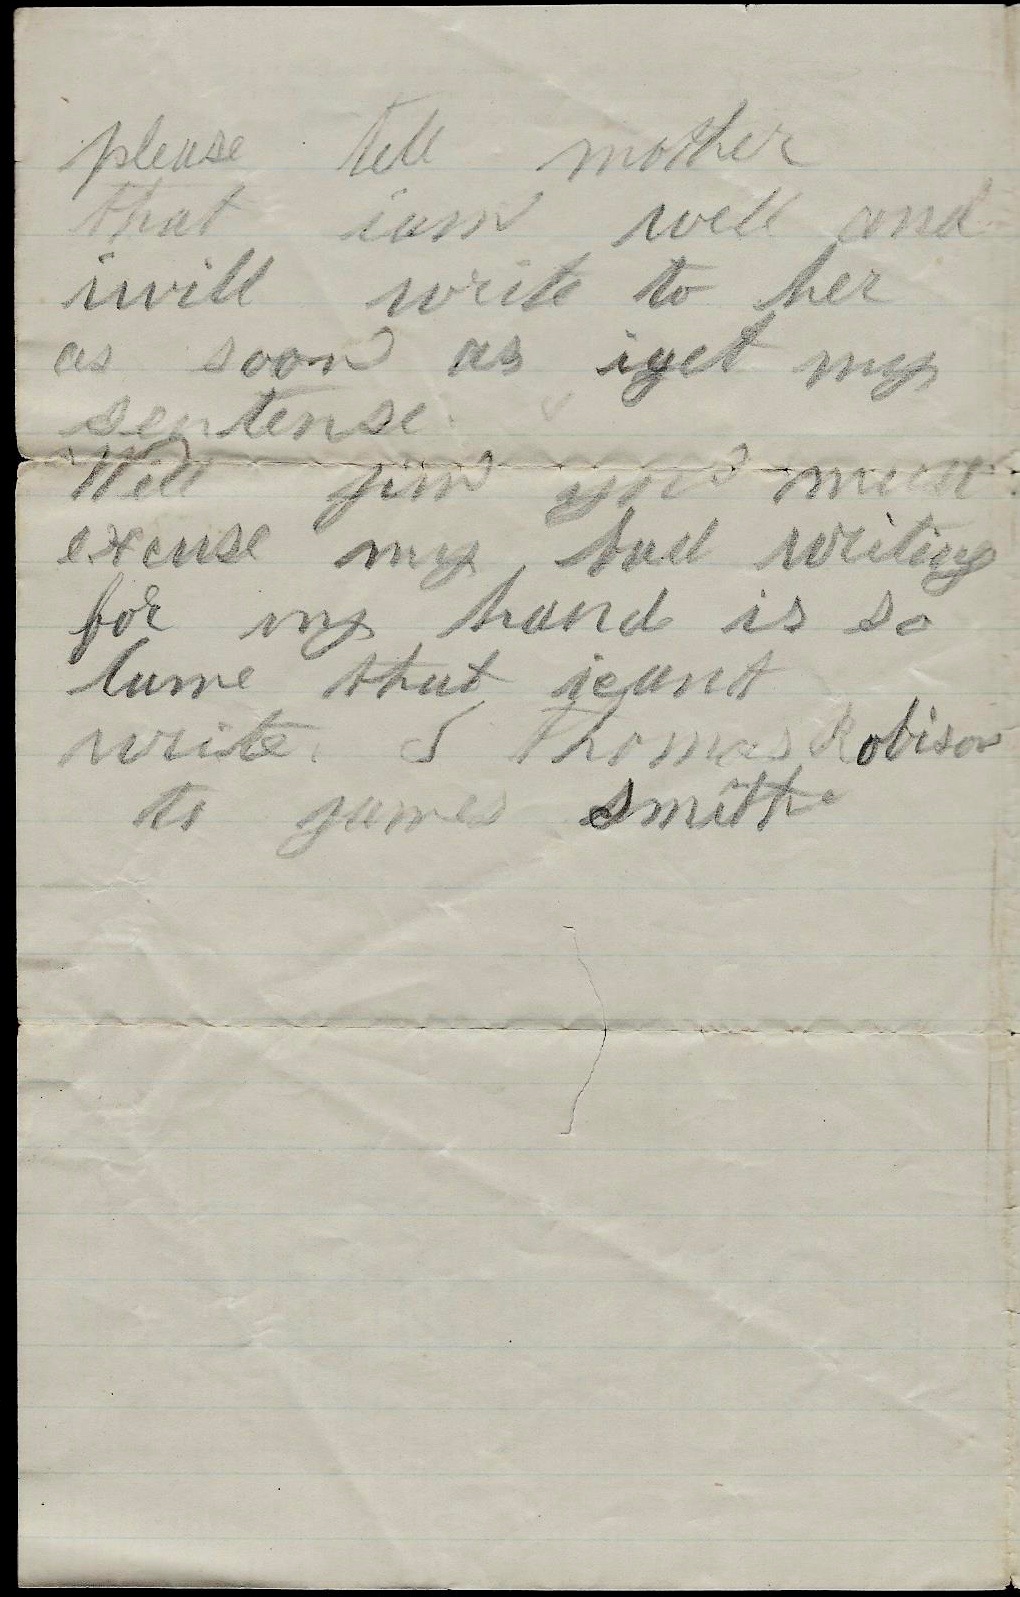 please tell mother
that iam well and
iwill write to her
as soon as iget my
sentense.
Well jim you must
excuse my bad writing
for my hand is so
lame that icant
write. J Thomas Robison
to james smith.